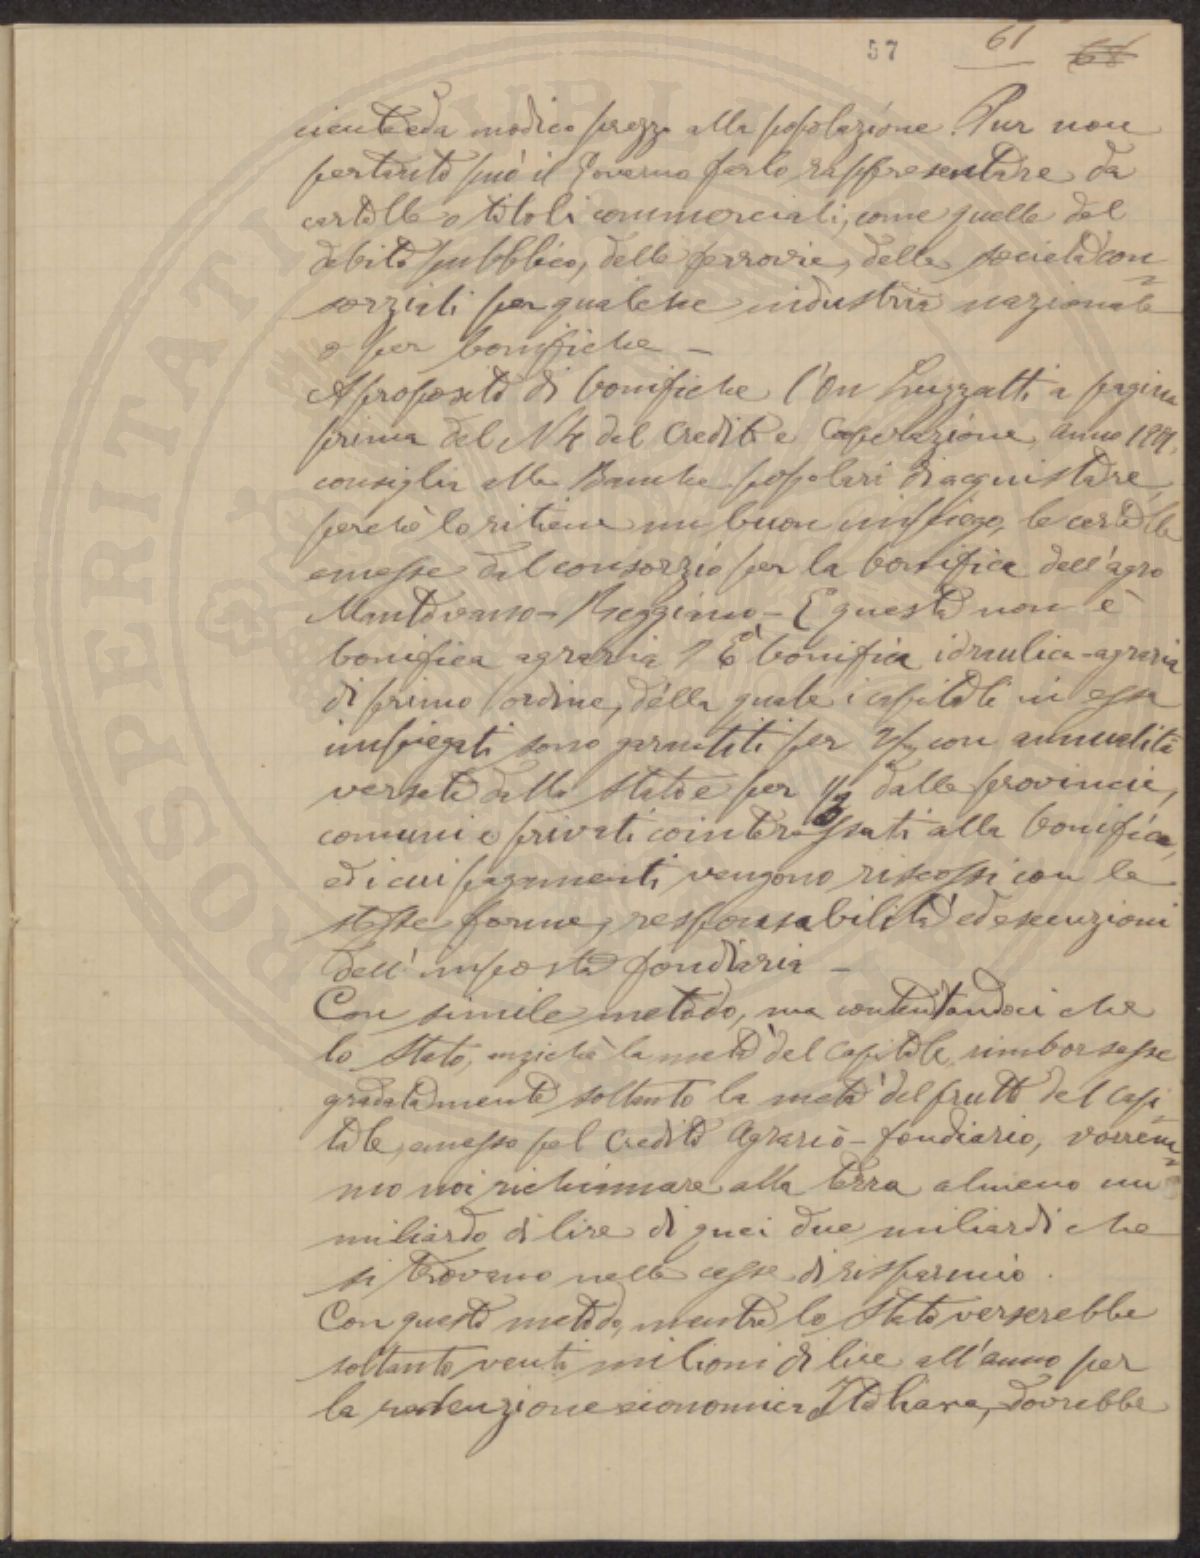 57 61 68
ciente ed a modico prezzo alla popolazione. Pur non
pertanto può il Governo farlo rappresentare da
cartelle o titoli commerciali, come quelle del
debito pubblico, delle ferrovie, delle società con
sorziali per qualche industria nazionale
o per bonifiche –
A proposito di bonifiche l'On Luzzatti a pagina
prima del N 4 del Credito e Cooperazione, anno 1901,
consiglia alle Banche popolari di acquistare,
perchè lo ritiene un buon impiego, le cartelle
emesse dal consorzio per la bonifica dell'agro
Mantovano – Reggiano – E questa non è
bonifica agraria? È bonifica idraulica-agraria
di primo ordine, della quale i capitali in essa
impiegati sono garantiti per con annualità
versate dallo Stato e per dalle provincie,
comuni e privati cointeressati alla bonifica,
ed i cui pagamenti vengono riscossi con le
stesse forme, responsabilità ed esecuzioni
dell'imposta fondiaria –
Con simile metodo, ma contentandoci che
lo Stato, anzichè la metà del capitale, rimborsasse
gradatamente soltanto la metà del frutto del capi
tale, emesso pel Credito Agrario – fondiario, vorrem
mo noi richiamare alla terra almeno un
miliardo di lire di quei due miliardi che
si trovano nelle casse di risparmio.
Con questo metodo, mentre lo Stato verserebbe
soltanto venti milioni di lire all'anno per
la redenzione economica Italiana, dovrebbe
PROSPERITATI PUBLICAE